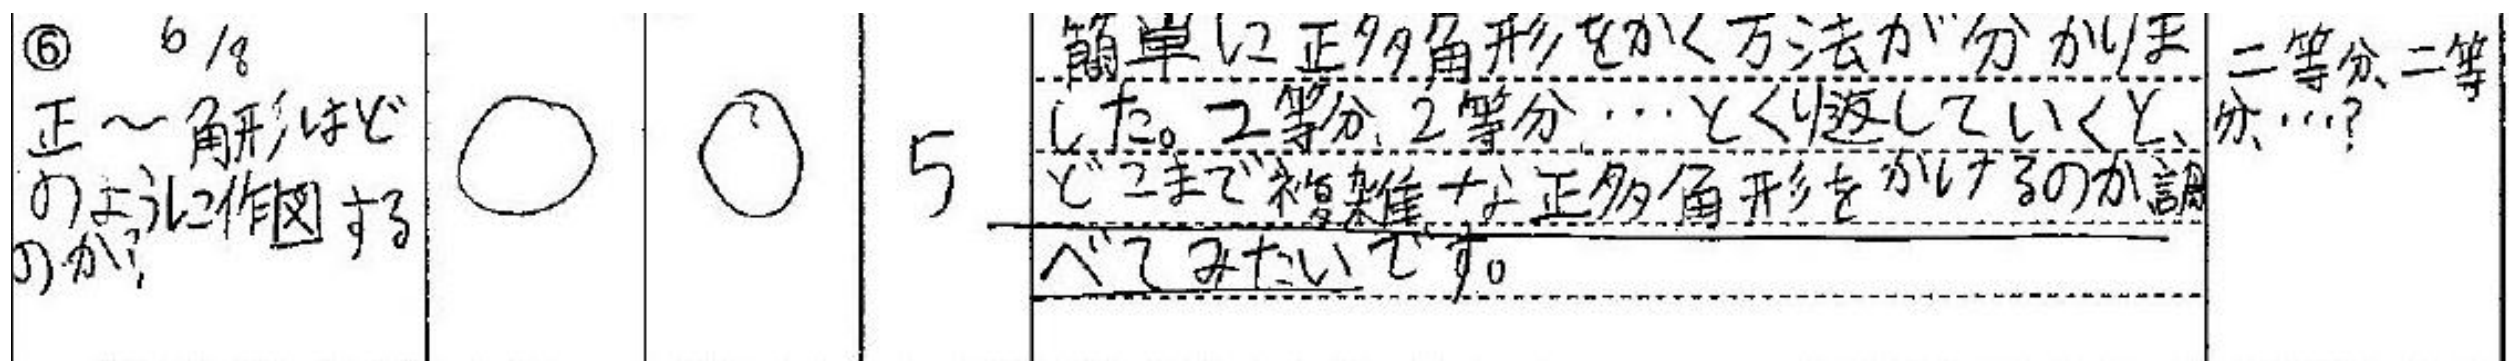 ⑥ 6/8
正～角形はど
のように作図する
のか?
○
○
5
簡単に正多角形をかく方法が分かりま
した。2等分、2等分、…とくり返していくと、
どこまで複雑な正多角形をかけるのか調
べてみたいです。
二等分、二等
分、…?